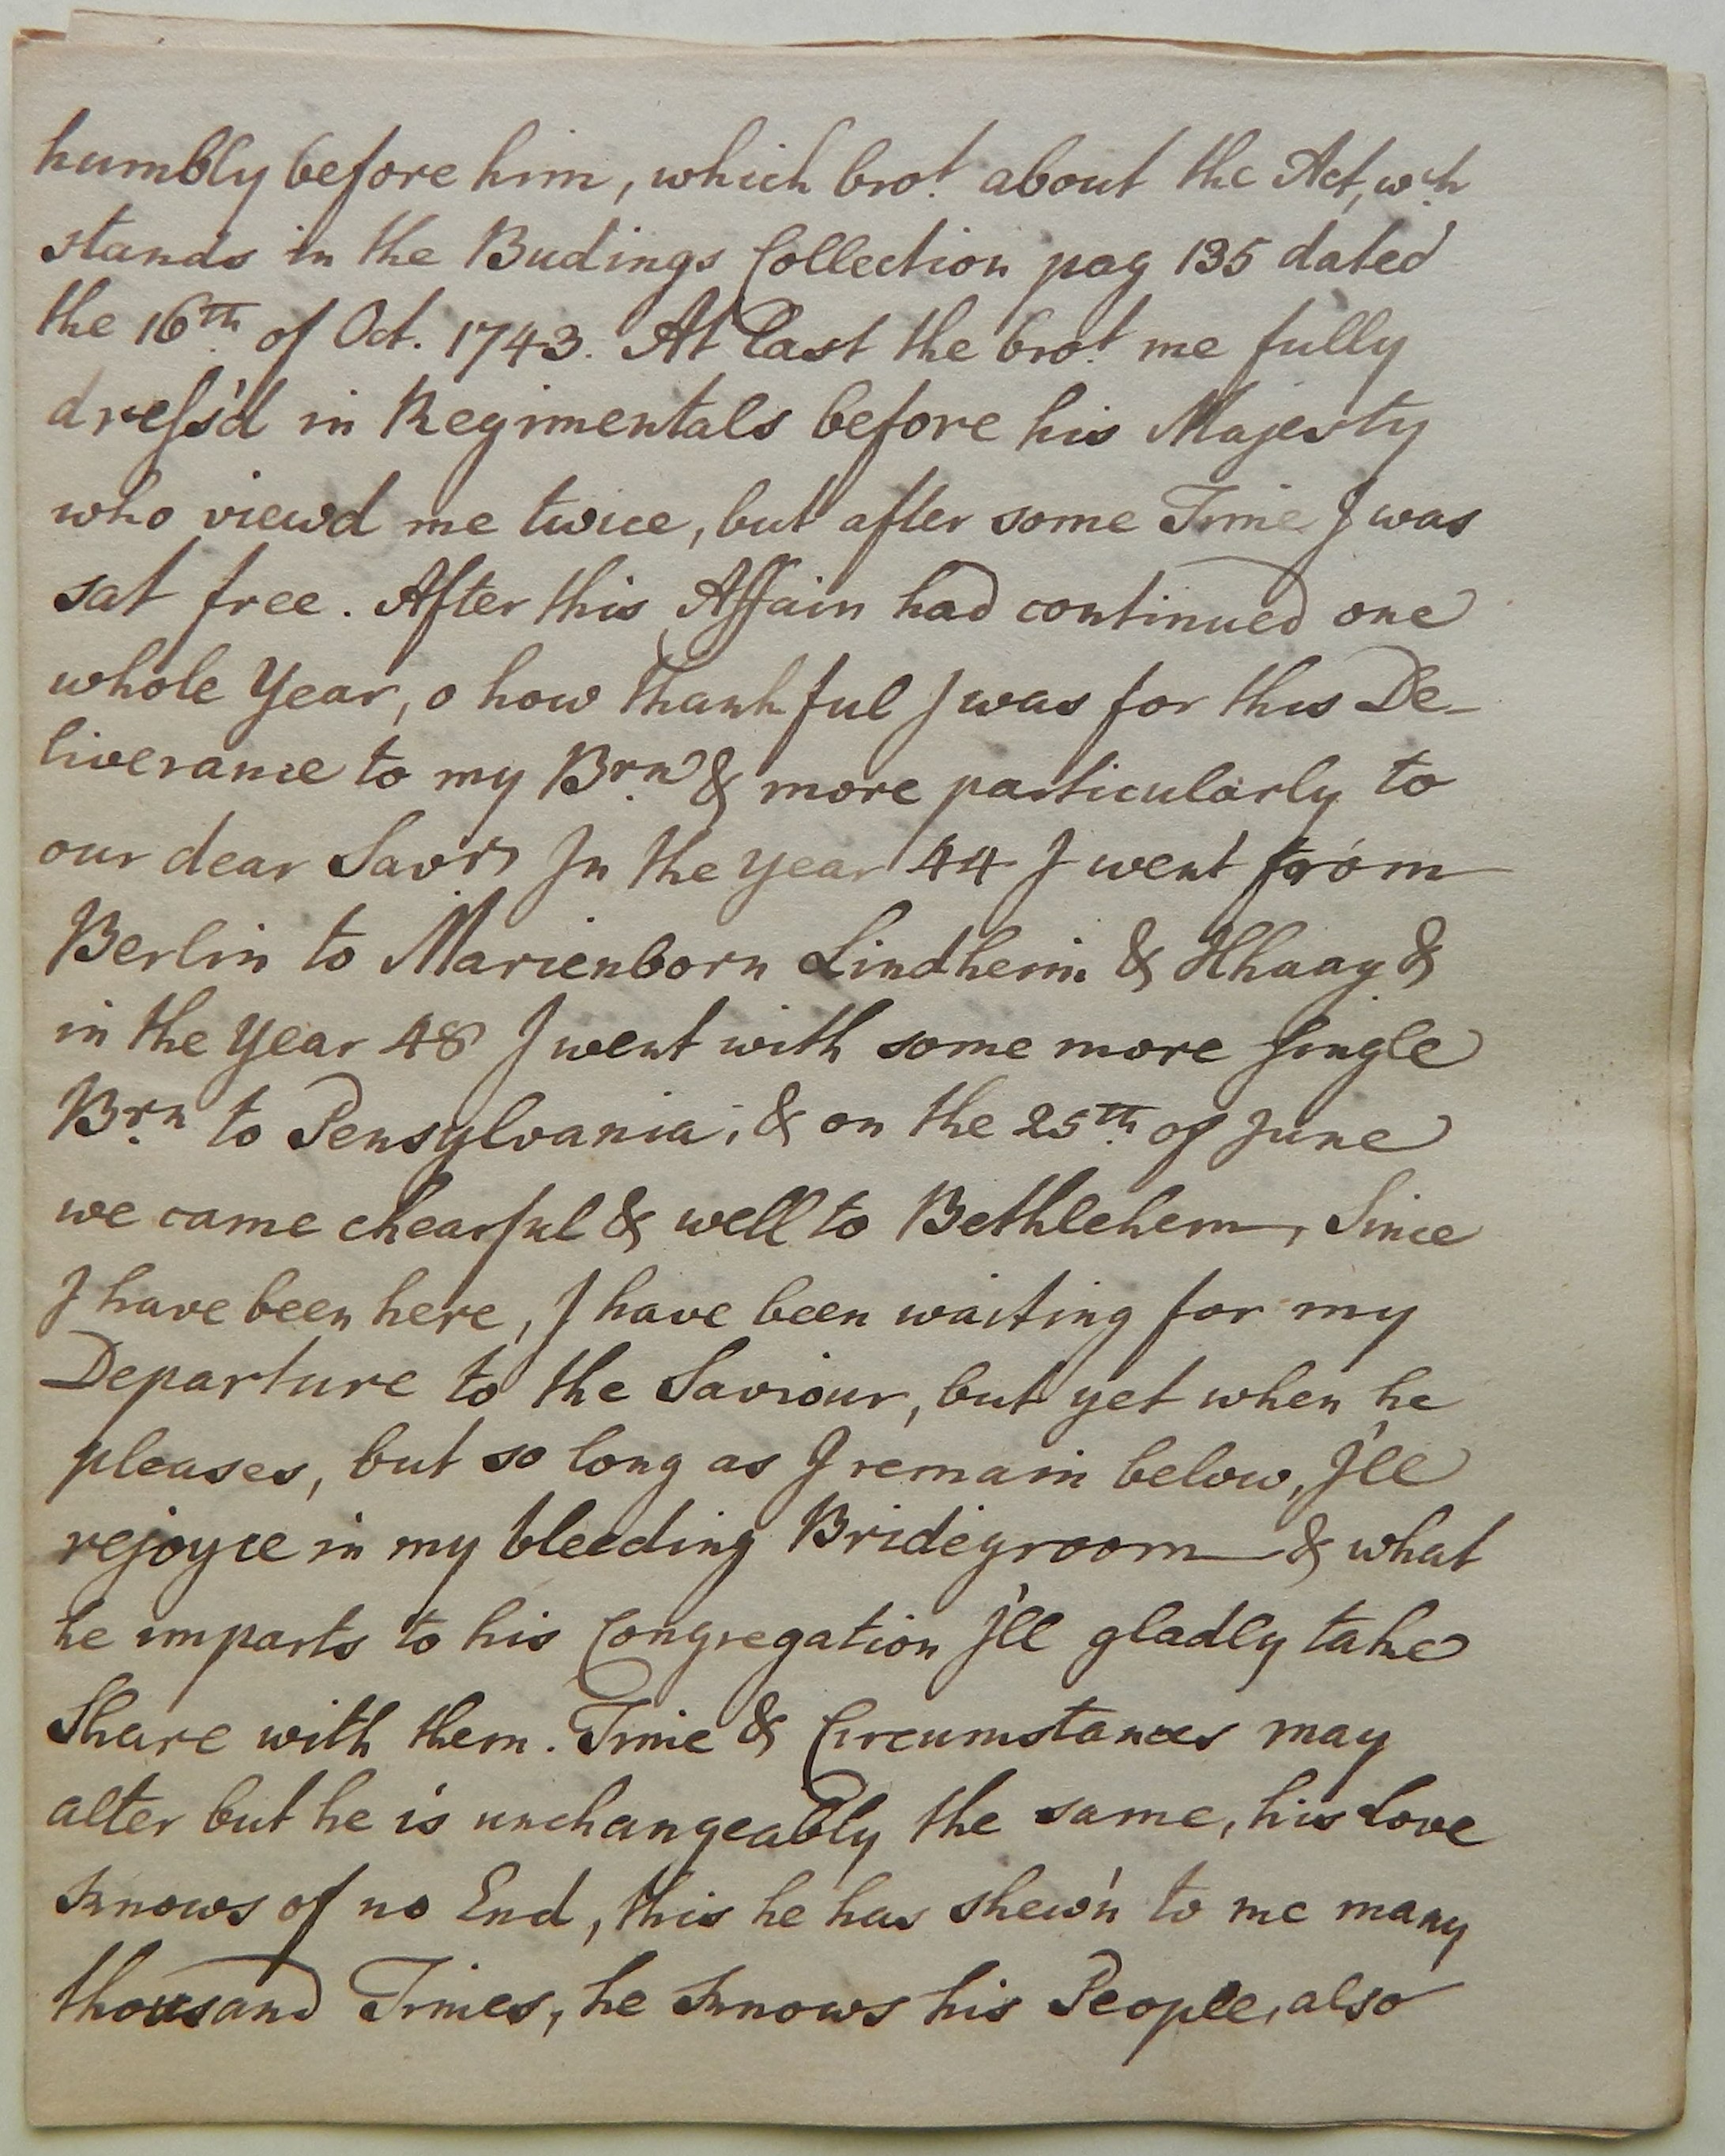 humbly before him, which bro.t about the Act, w.ch
stands in the Budings Collection pag 135 dated
the 16th of Oct. 1743. At last the bro.t me fully
dress'd in Regimentals before his Majesty
who viewd me twice, but after some Time I was
sat free. After this Affair had continued one
whole Year, o how thankful I was for this De-
liverance to my Br.n & more particularly to
our dear Savr, In the year 44 I went from
Berlin to Marienborn Lindheim & Hhaag &
in the Year 48 I went with some more single
Br.n to Pensylvania, & on the 25th of June
we came chearful & well to Bethlehem, Since
I have been here, I have been waiting for my
Departure to the Saviour, but yet when he
pleases, but so long as I remain below, I'll
rejoyce in my bleeding Bridegroom & what
he imparts to his Congregation I'll gladly take
Share with them. Time & Circumstances may
alter but he is unchangeably the same, his Love
knows of no End, this he has shew'n to me many
thousand Times, he knows his People, also